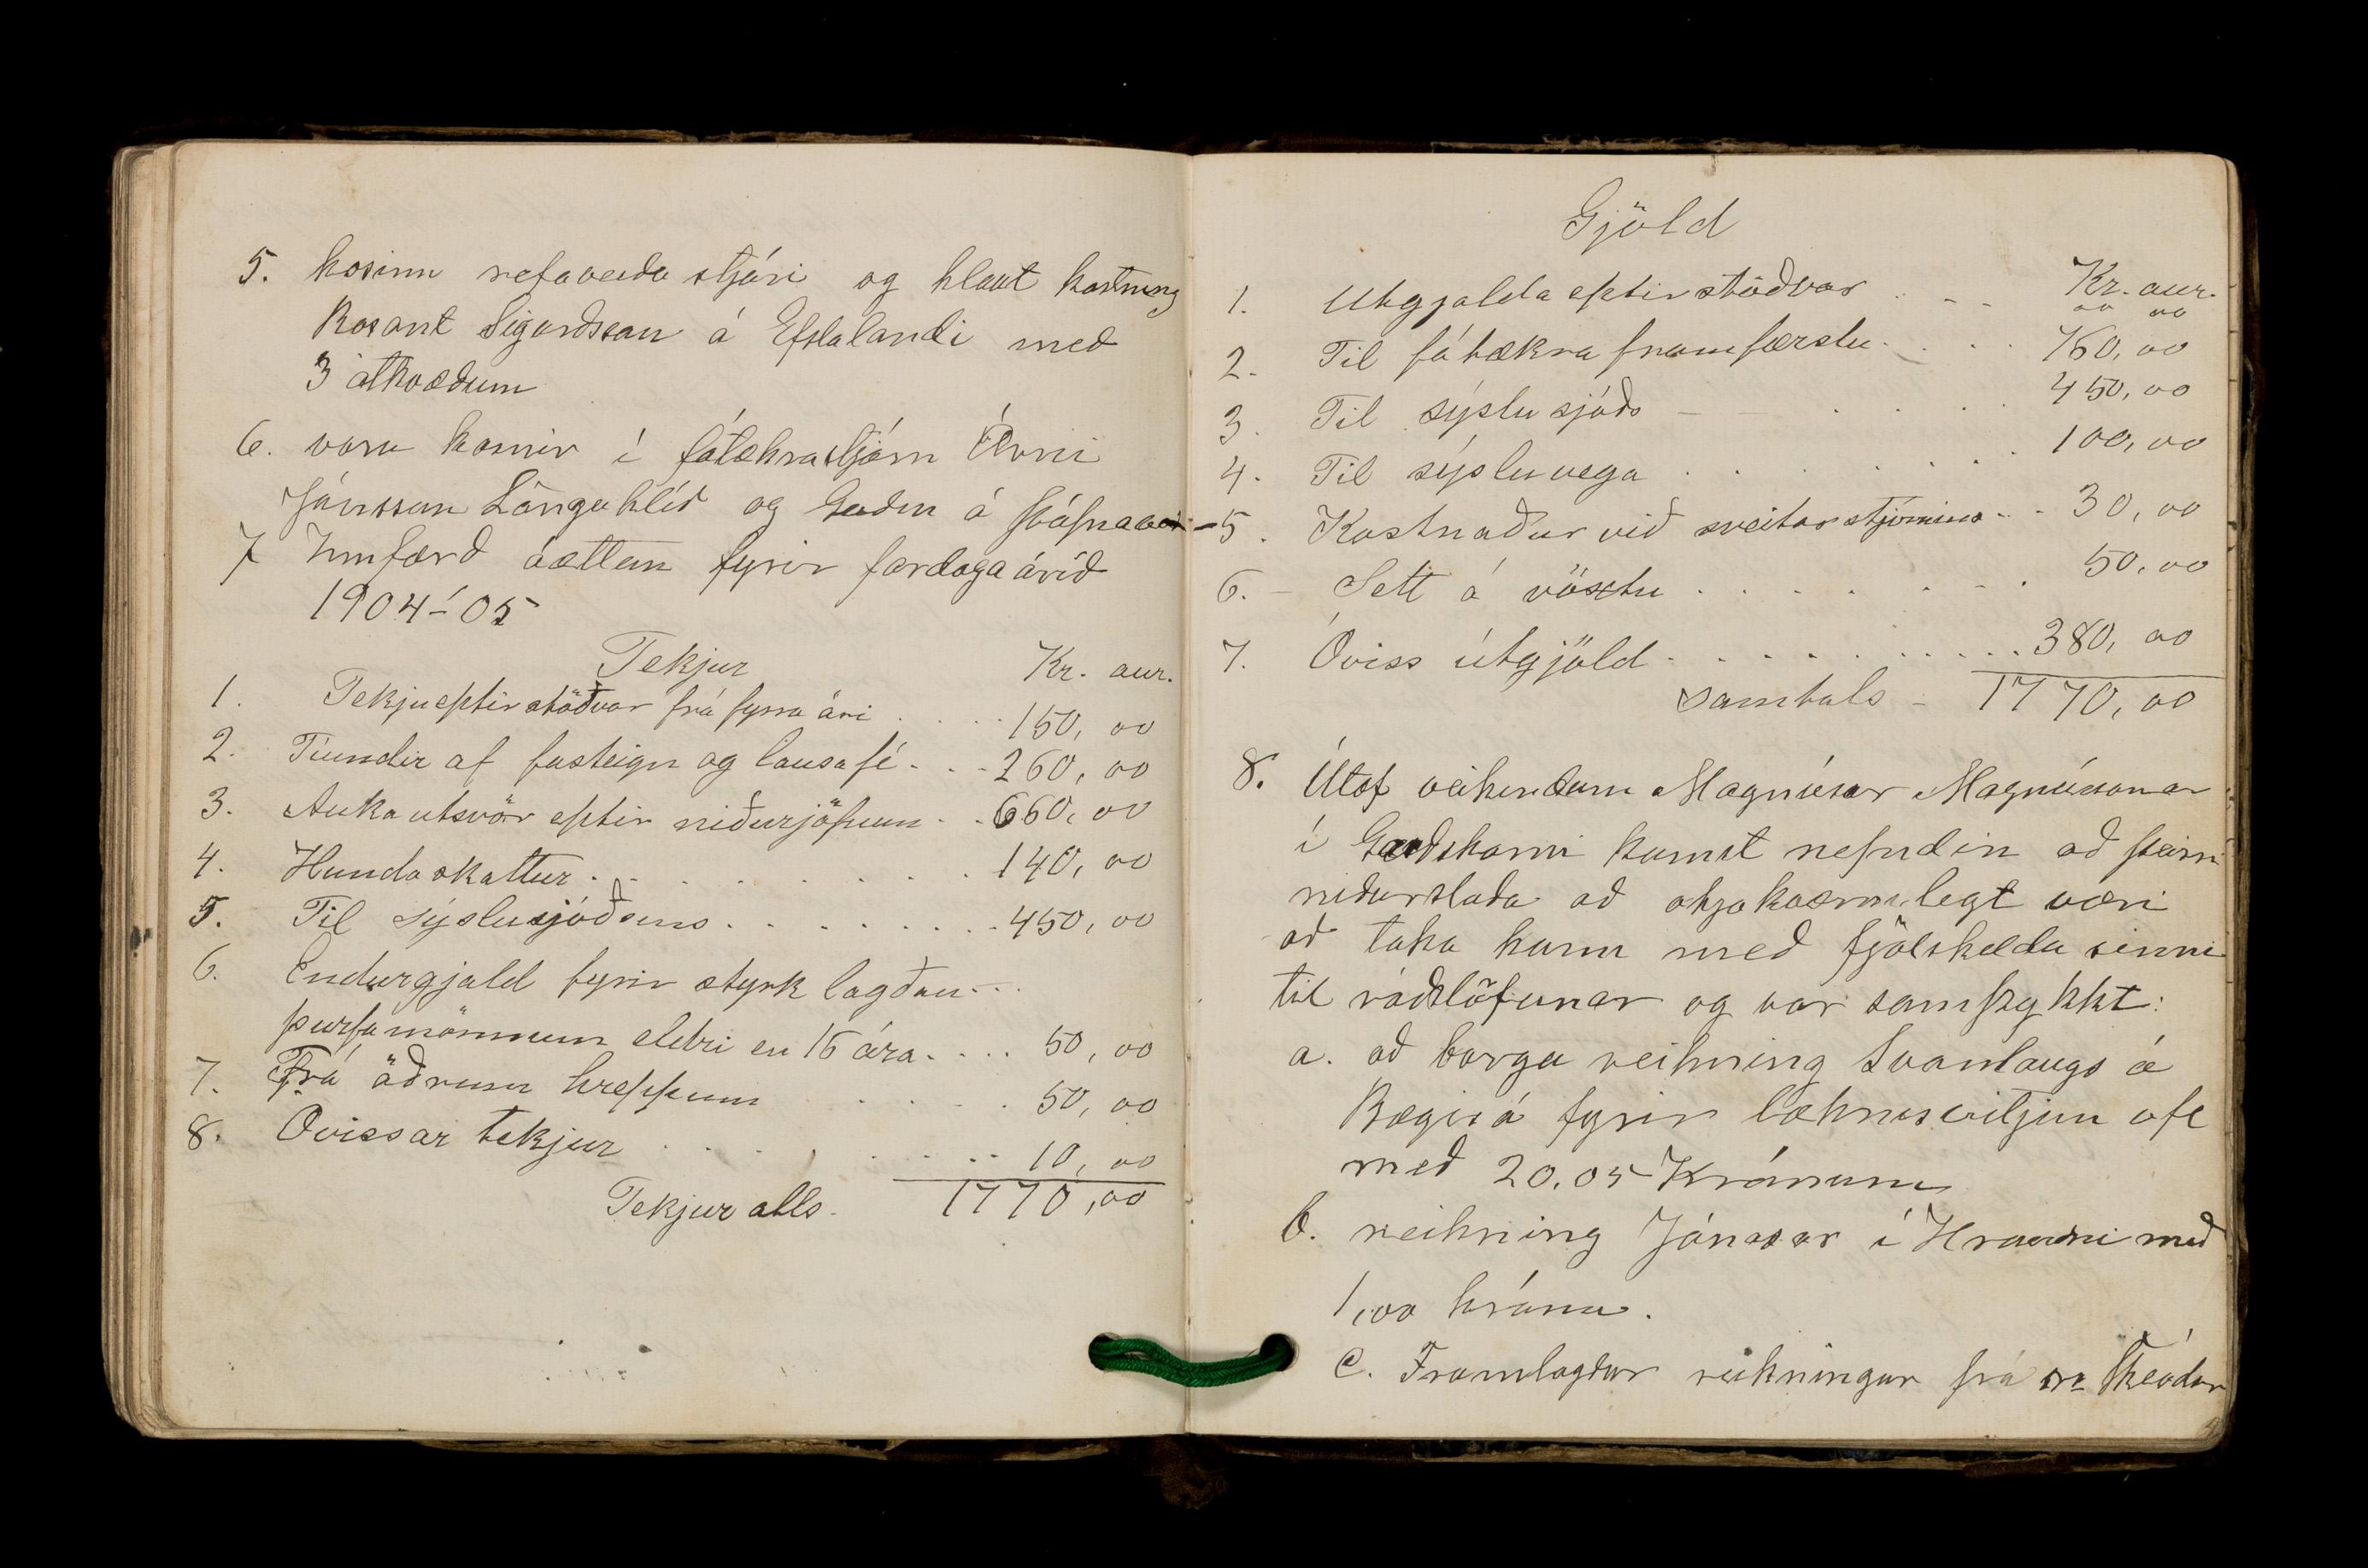 5. kosinn refaveiða stjóri og hlaut kosning
Rosant Sigurðsson á Efstalandi með
3 atkvæðum
6. voru kosnir í fátækrastjórn Árni
Jónsson Lönguhlíð og Guðm á Þúfnavöl-
7 Umfærð áætlun fyrir fardaga árið
1904-05
Tekjur Kr. aur.
1. Tekju eptirstöðvar frá fyrra ári . . . . 150,00
2. Tíundir af fasteign og lausafé . . . 260,00
3. Auka utsvör eptir niðurjöfnun . . 660,00
4. Hunda skattur . . . . . . . . 140,00
5. Til sýslusjóðsins . . . . . . . . 450,00
6. Endurgjald fyrir styrk lagðan . . .
þurfamönnum eldri en 16 ára . . . . 50,00
7. Frá öðrum hreppum . . . . . 50,00
8. Ovissar tekjur . . . . . . . 10,00
Tekjur alls 1770,00
Gjöld
Kr. aur.
1. Utgjalda eptirstöðvar . - - 00 00
2. Til fátækra framfærslu . . . . 760,00
3. Til sýslu sjóðs - - . . . . 450,00
4. Til sýsluvega . . . . . . . 100,00
5. Kostnaður við sveitarstjórnina - . 30,00
6. - Sett á vöxtu . . . . . - . 50,00
7. Óviss útgjöld . . . . . . . . . . 380,00
Samtals - 1770,00
8. Útaf veikindum Magnúsar Magnússonar
í Garðshorni komst nefndin að þeirri
niðurstaða að ohjákvæmilegt væri
að taka hann með fjölskeldu sinni
til ráðstöfunar og var samþykkt:
a. að borga reikning Svanlaugs á
Bægisá fyrir læknisvitjun ofl
með 20.05 Krónum
b. reikning Jónasar í Hrauni með
1,00 krónu.
C. Framlagður reikningur frá sra Theódor